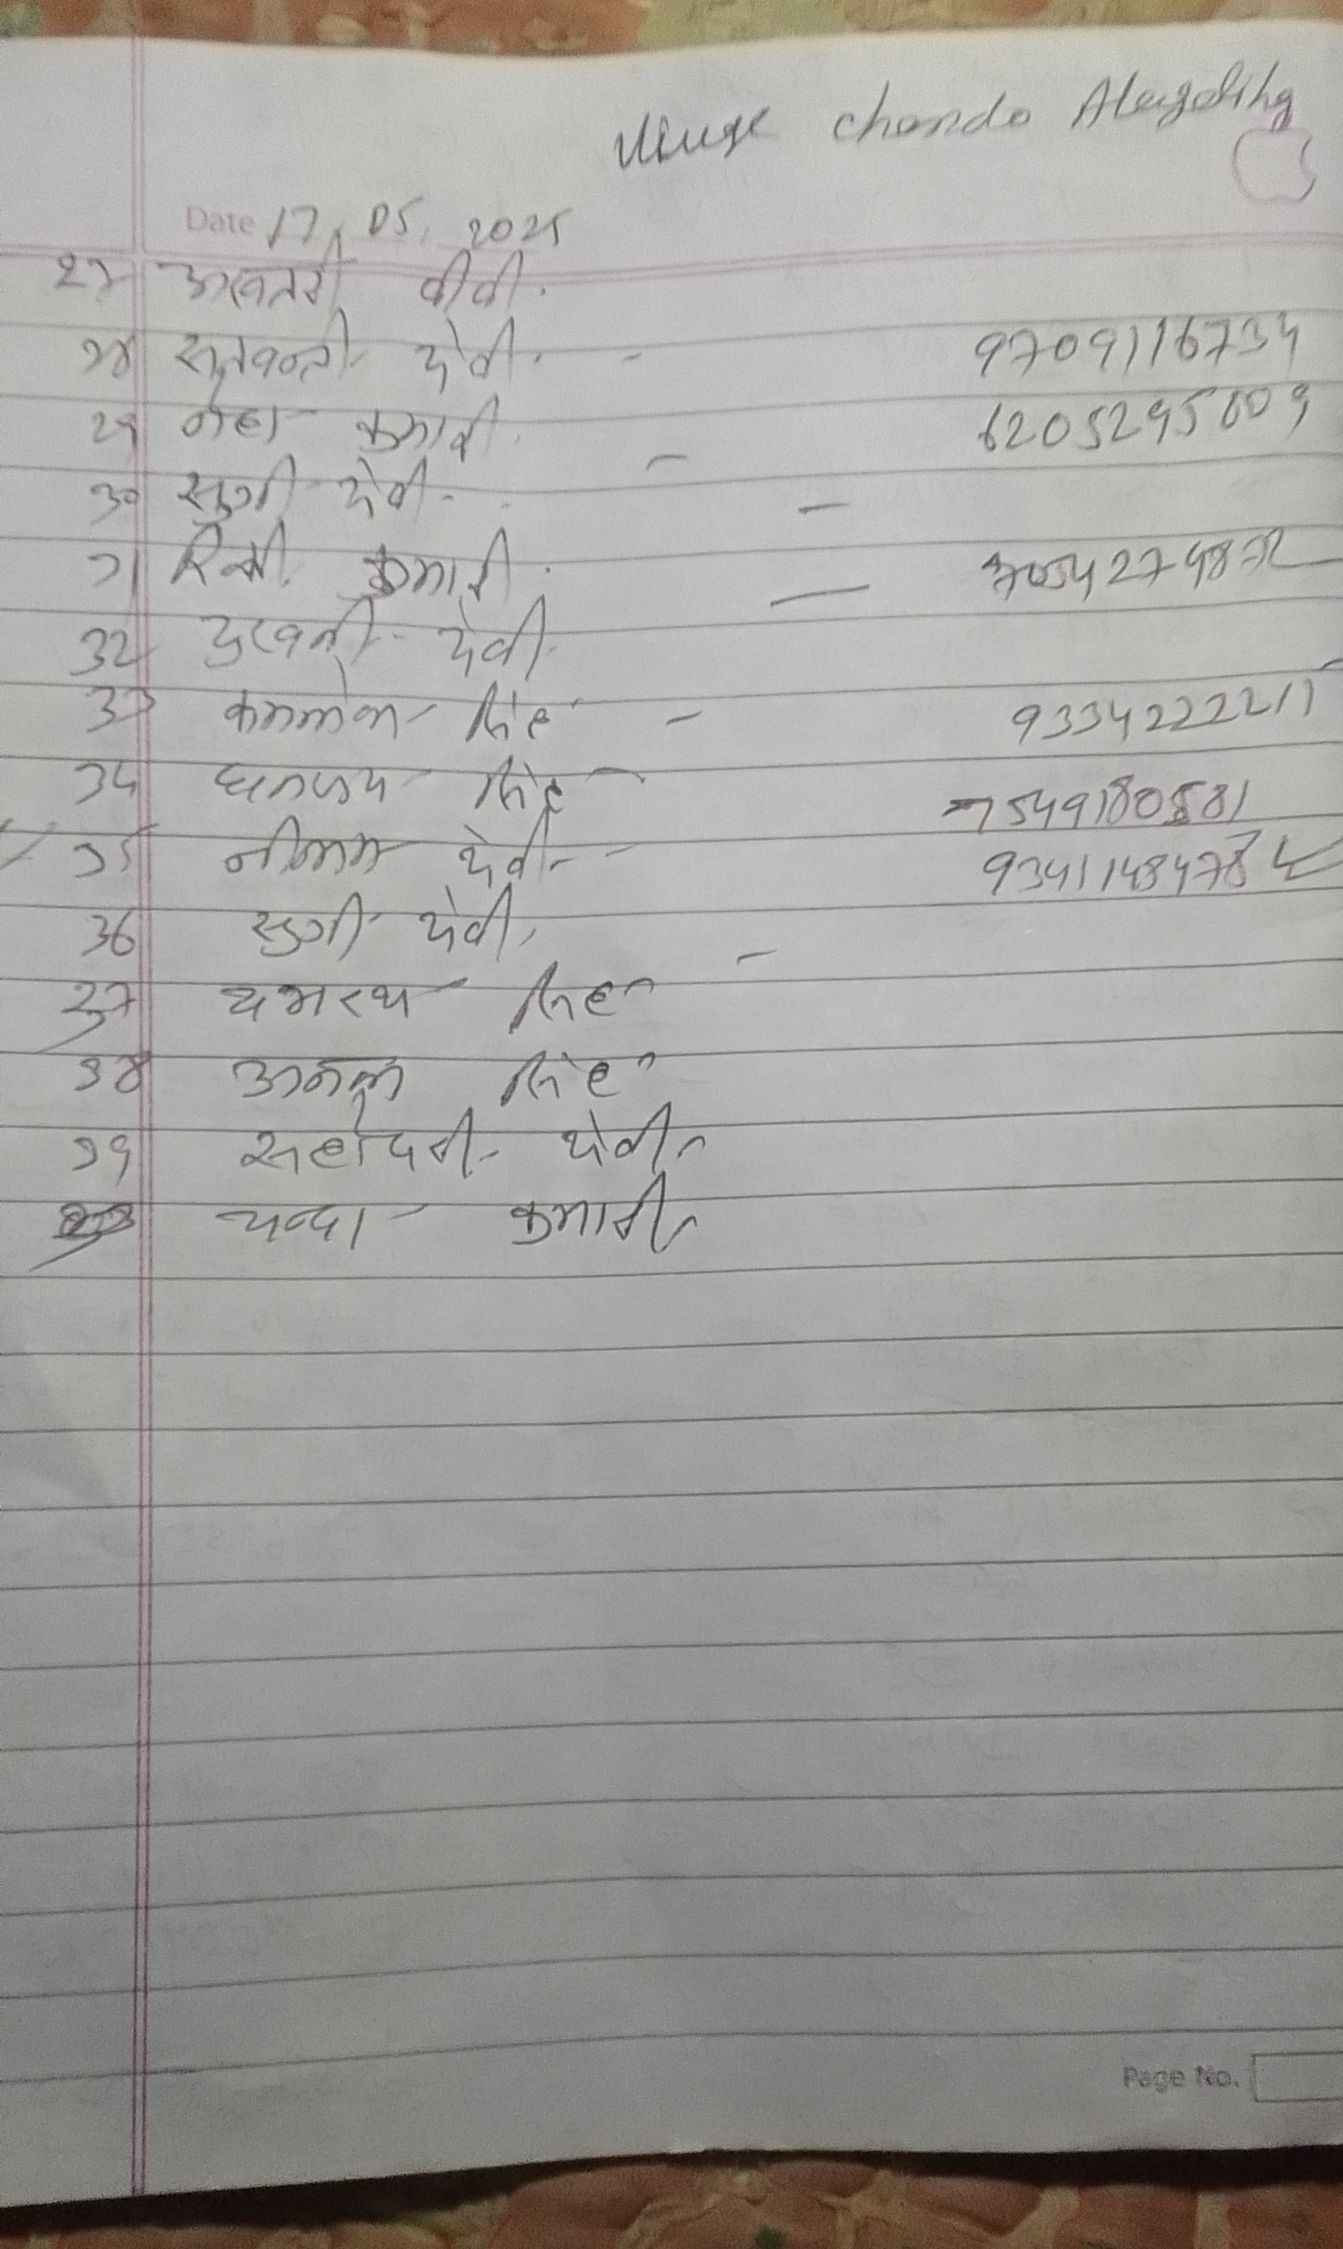 chando
Date 17, 05, 2025
27 अखतरी बीबी.
28 सतवन्ती देवी. - 9709116734
29 नेहा कुमारी. - 6205295609
30 सुगी देवी - -
31 रिन्की कुमारी. — 7054274872
32 दुखनी देवी
33 कमलेश सिंह - 9334222211
34 धनन्जय सिंह - 7549180581
35 नीलम देवी - 9341148478
36 सुगी देवी, -
37 दशरथ सिंह
38 सिंह
39 सहोदरी देवी
चन्दा कुमारी
Page No.